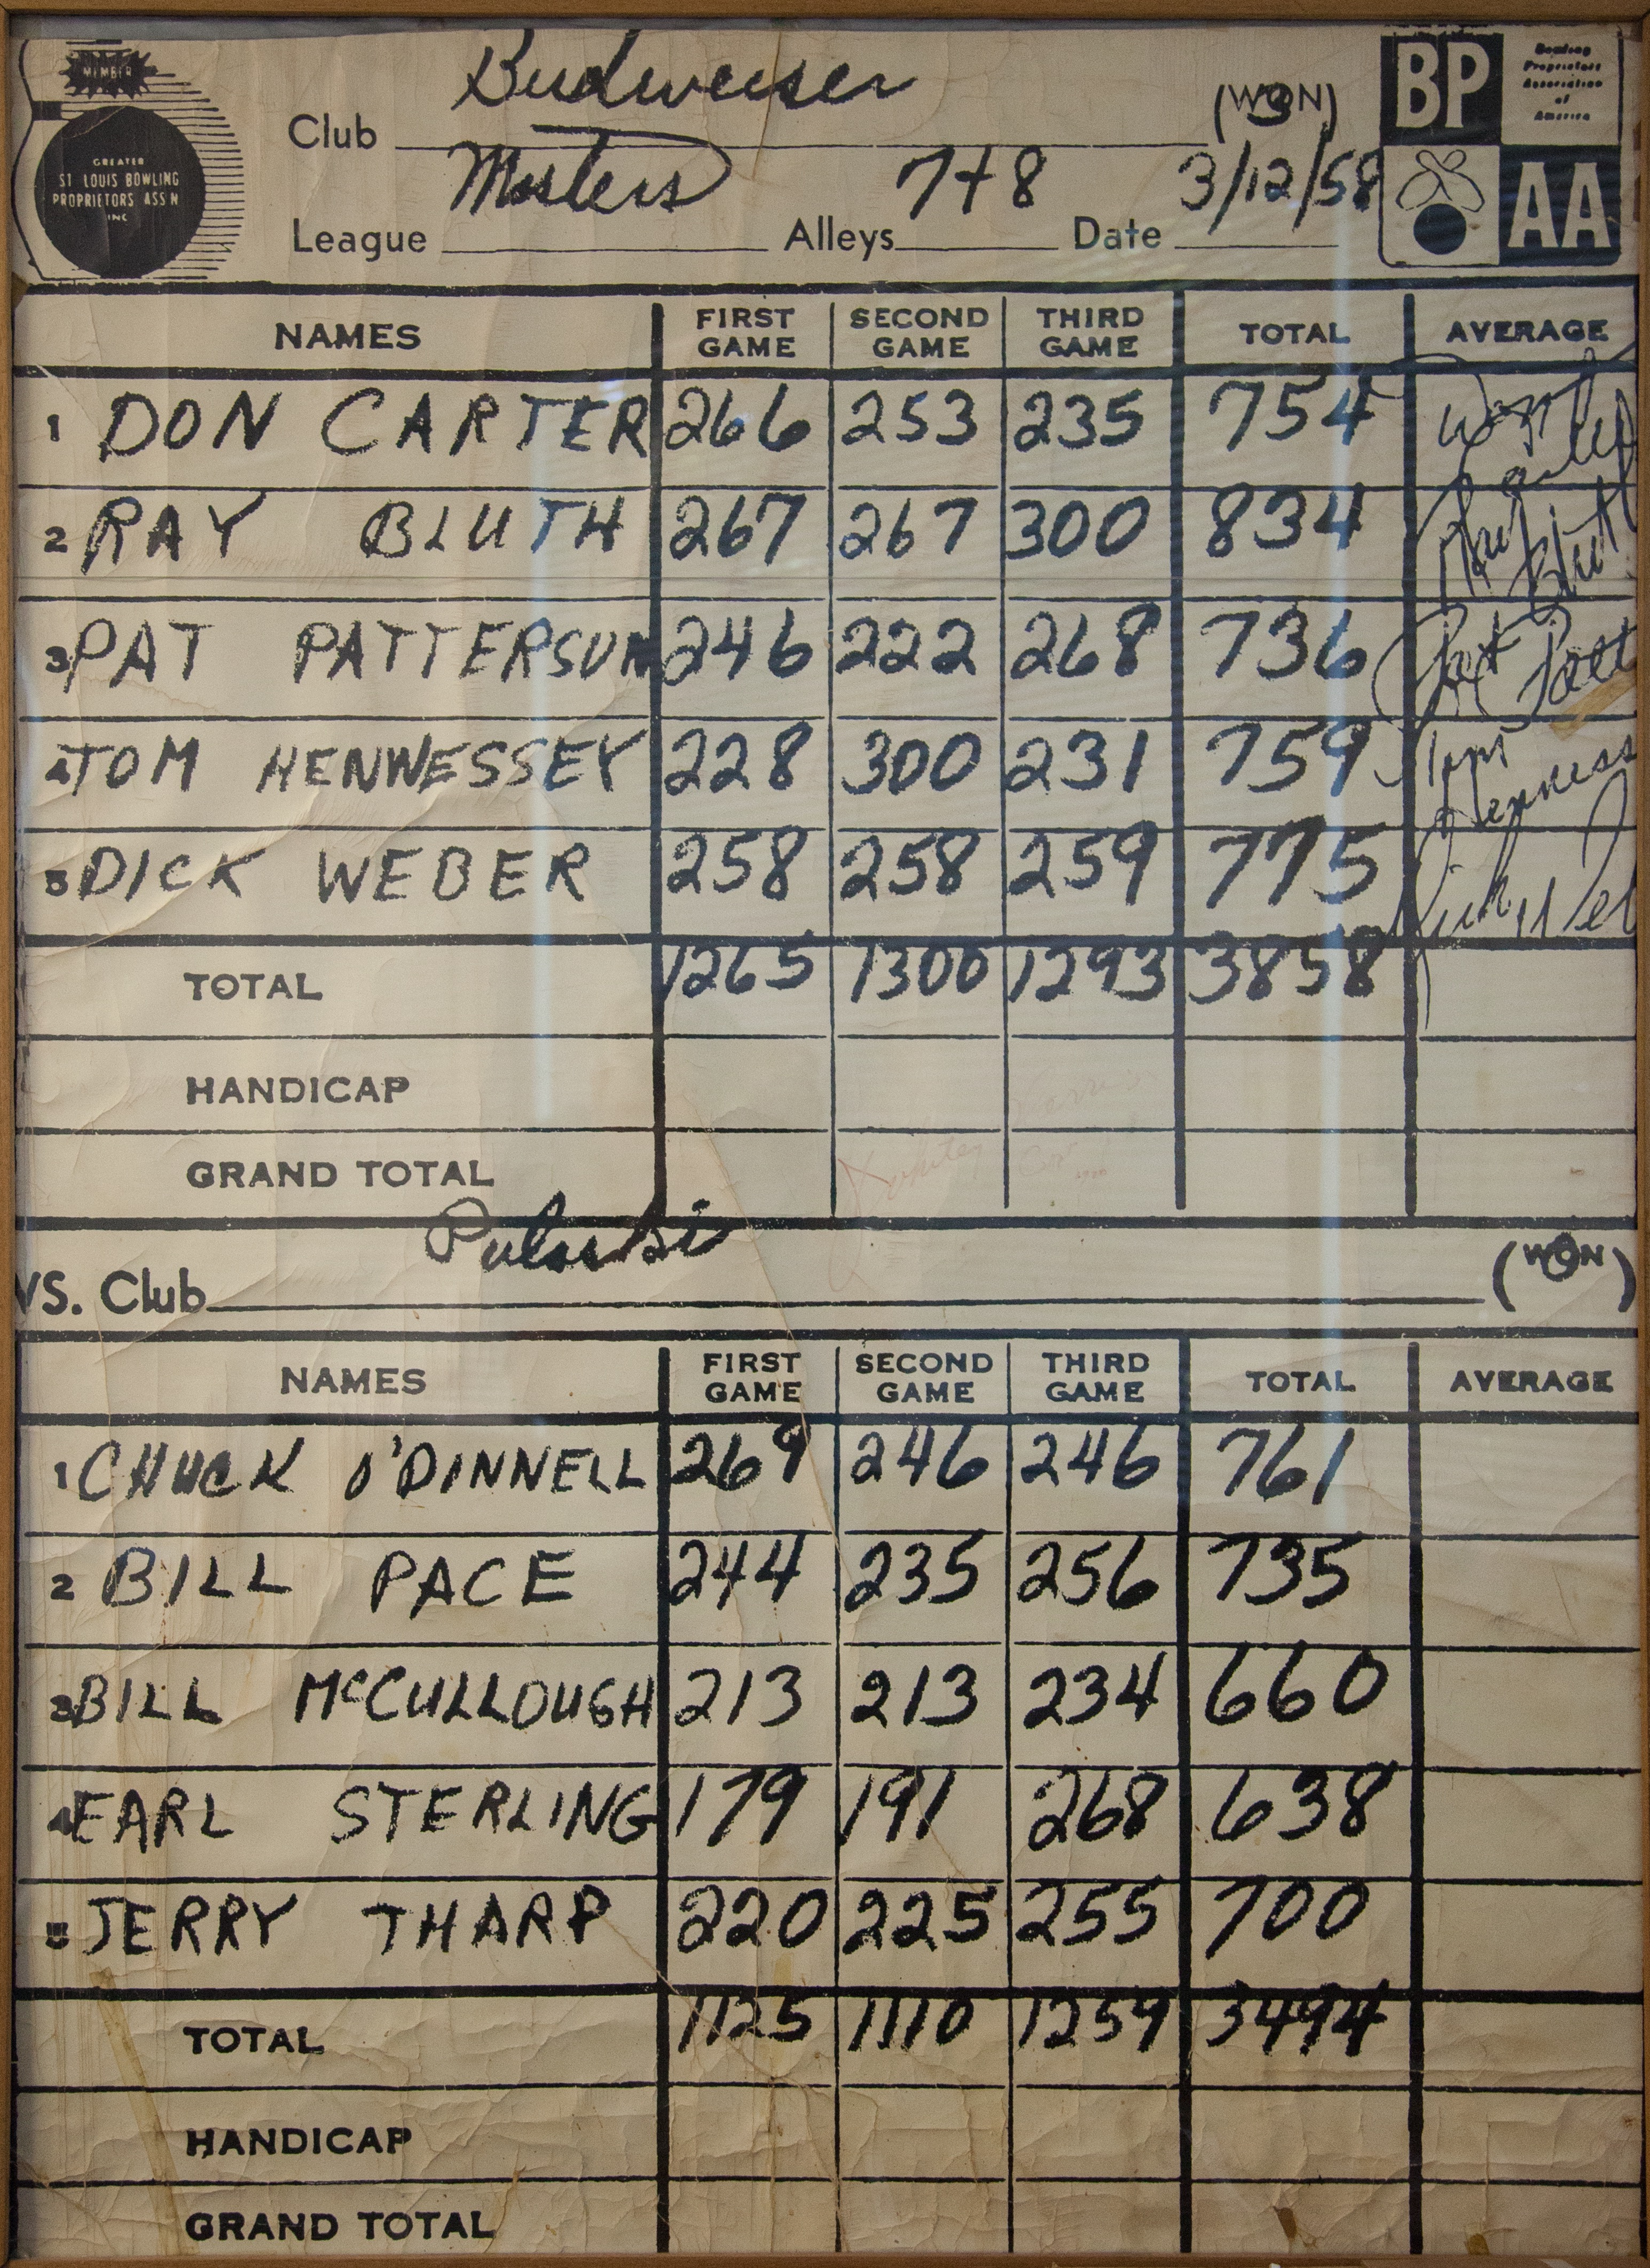 MEMBER
GREATER
ST LOUIS BOWLING
PROPRIETORS ASS'N
INC
Budweiser
Club (WON) 3
Masters 7+8 3/12/58
League Alleys Date
BP
Bowling
Proprietors
Association
of
America
AA
NAMES FIRST GAME SECOND GAME THIRD GAME TOTAL AVERAGE
1 DON CARTER 266 253 235 754 Don Carter
2 RAY BLUTH 267 267 300 834 Ray Bluth
3 PAT PATTERSON 246 222 268 736 Pat Patt
4 TOM HENNESSEY 228 300 231 759 Tom Henness
5 DICK WEBER 258 258 259 775 Dick Web
TOTAL 1265 1300 1293 3858
HANDICAP
GRAND TOTAL
Pulaski
VS. Club (WON) 0
NAMES FIRST GAME SECOND GAME THIRD GAME TOTAL AVERAGE
1 CHUCK O'DINNELL 269 246 246 761
2 BILL PACE 244 235 256 735
3 BILL McCULLOUGH 213 213 234 660
4 EARL STERLING 179 191 268 638
5 JERRY THARP 220 225 255 700
TOTAL 1125 1110 1259 3494
HANDICAP
GRAND TOTAL